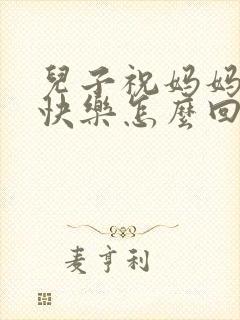 兒子祝媽媽
快樂怎麼回
麦亨利